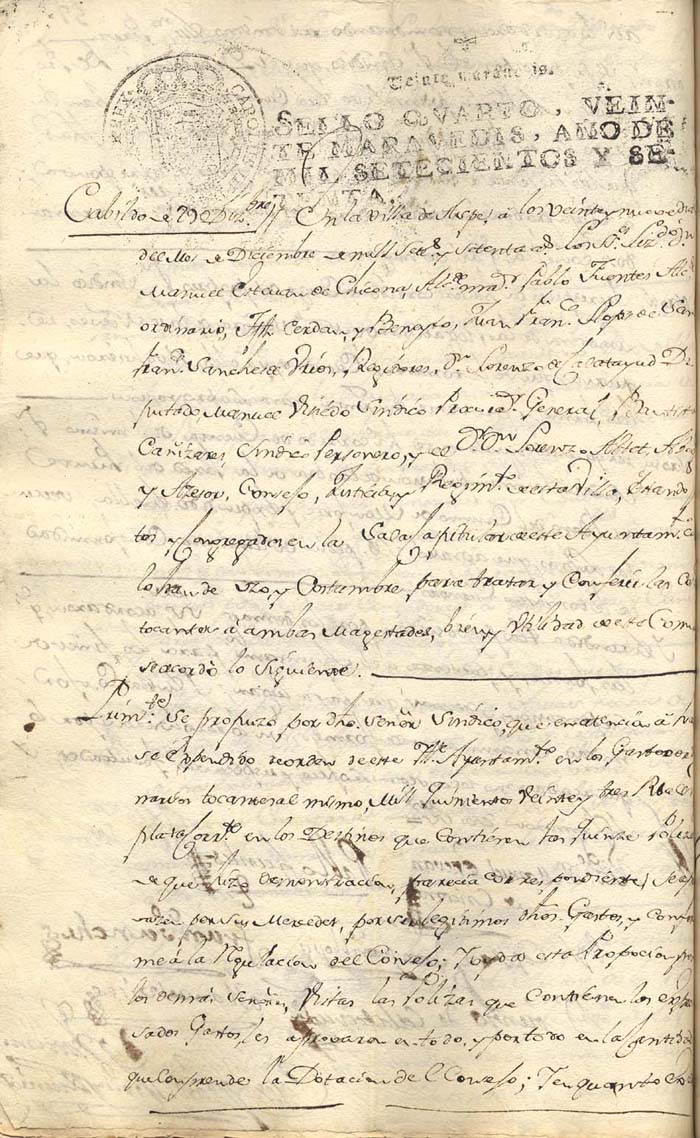 Veinte maravedis.
SELLO QVARTO, VEIN-
TE MARAVEDIS, AÑO DE
MIL SETECIENTOS Y SE-
TENTA.
CARO REX
Cabildo de 29 de Diz.bre // En la Villa de Aspe, à los veinte y nueve dias
del Mes de Diciembre de mill Set.s y Setenta a.s Los S.res
Manuel Estevan de Chicona, Alc.de Pablo Fuentes Alc.
ordinario, Cerdan, y Benayto, Juan Fran.co Llopis de
Fran.co Sanchez de Regidores, D.n Lorenzo de Calatayud Di
putado, Manuel Sindico Procur.or General, Bautista
Cañizares, Sindico Personero, y el D.r D.n Lorenzo
y Asesor, Consejo, Justicia, y Regim.to de esta Villa, estando
tos, y Congregados en la Sala Capitular de este Ayuntam.to
lo han de uzo, y Costumbre para tratar, y Conferir las Co
tocantes à ambas Magestades, bien, y utilidad de este Comun
se acordò lo siguiente.
Prim.te Se propuzo por dho. Señor Sindico, que en atencion à
se expendido de orden de este Ill.e Ayuntam.to en los Gastos or
narios tocantes al mismo, Mill Quinientos veinte y tres R.s
plata Cor.te en los Destinos que contienen las quinze Polizas
de que hizo demonstracion, parecia correspondiente,
por Sus Mercedes, por ser legitimos dhos. Gastos, y confor
me à la Regulacion del Consejo; Y oyda esta Proposicion por
los demas Señores, vistas las Polizas que contienen los expre
sados Gastos, les aprovaron en todo, y por todo en la Cantidad
que comprende la Dotacion de el Consejo; Y en quanto